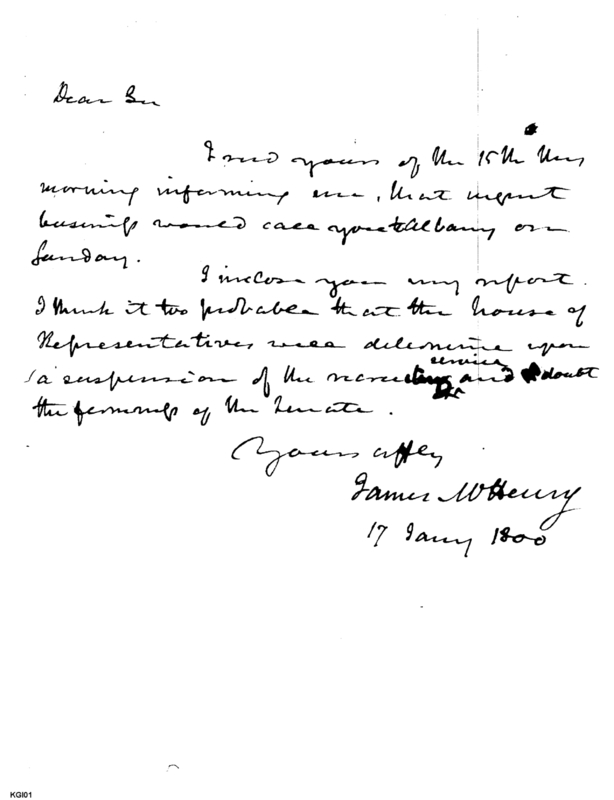 Dear Sir
I recd yours of the 15th this
morning informing me, that urgent
business would call you to Albany on
Sunday.
I inclose you my report.
I think it too probable that the house of
Representatives will determine upon
a suspension of the recruiting service and I doubt
the firmness of the Senate.
Yours affly
James McHenry
17 Jany 1800
KGI01